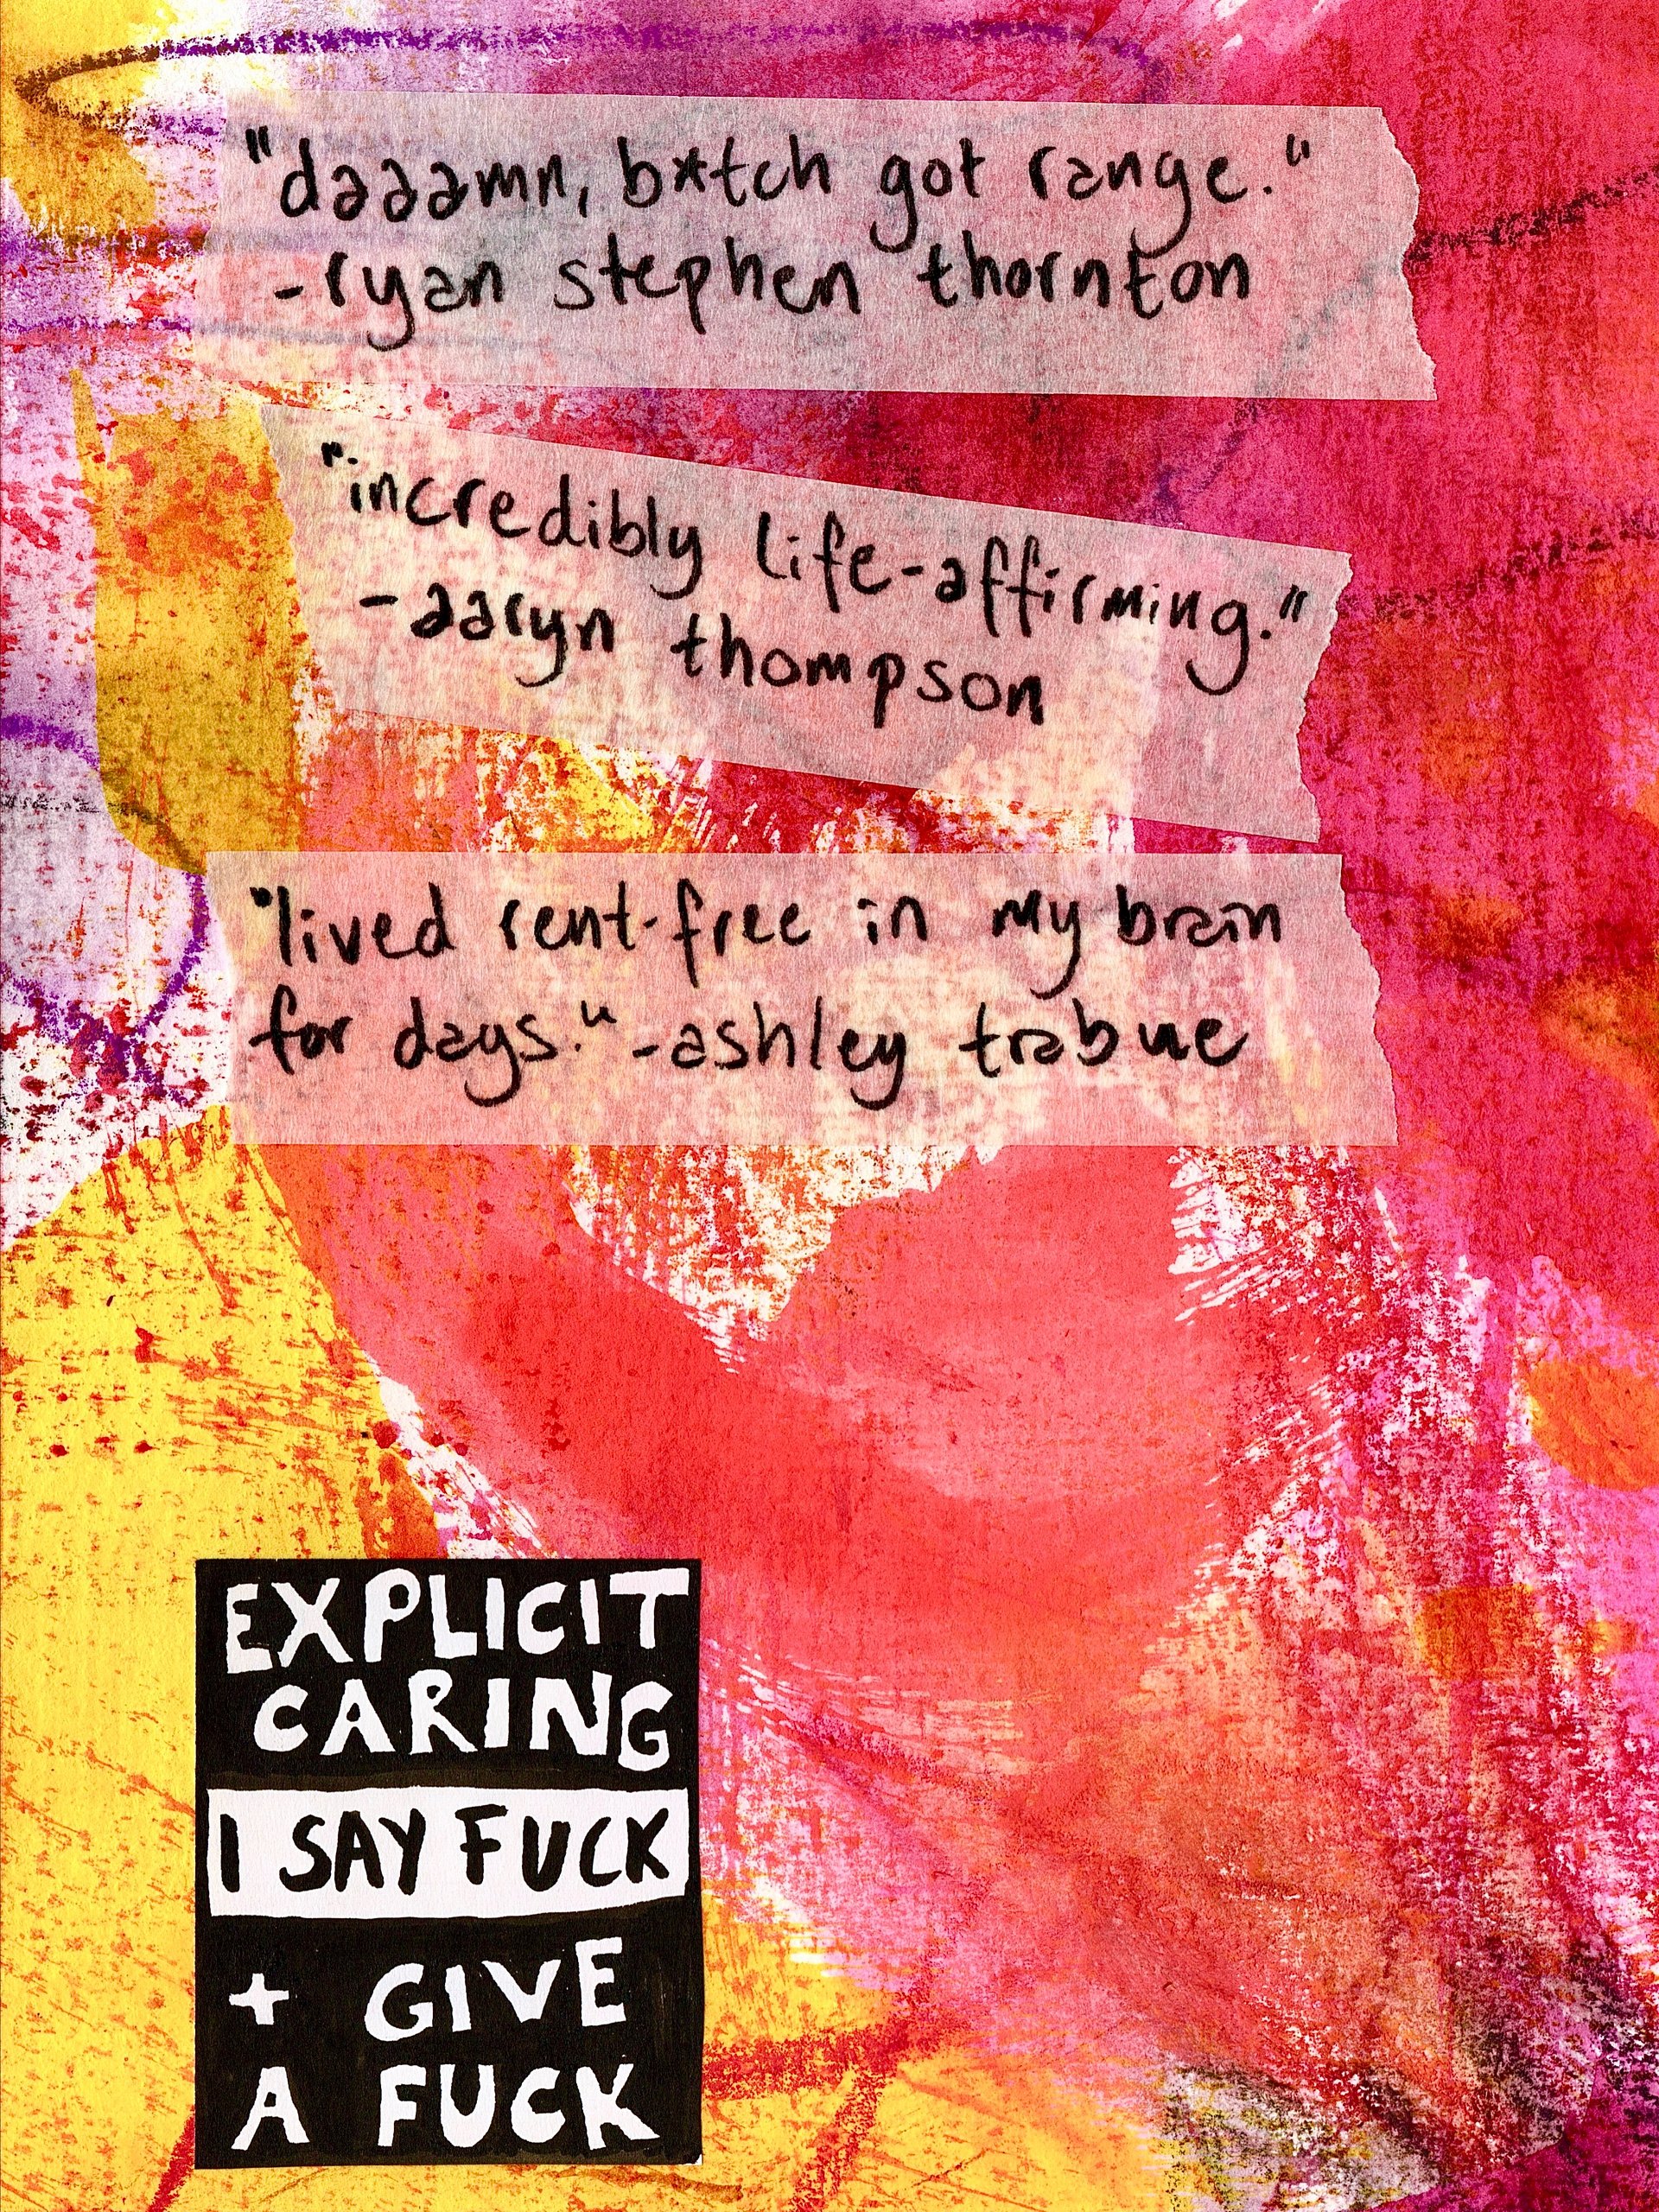 "daaamn, b*tch got range."
-ryan stephen thornton
"incredibly life-affirming."
-aaryn thompson
"lived rent-free in my brain
for days." -ashley trabue
EXPLICIT
CARING
I SAY FUCK
+ GIVE
A FUCK